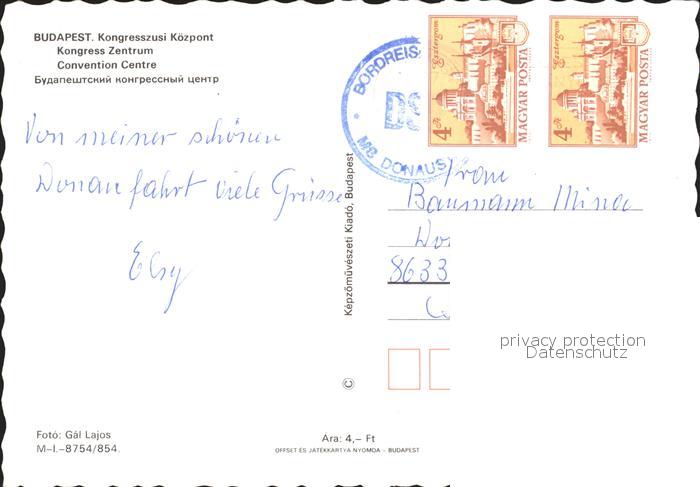 BUDAPEST. Kongresszusi Központ
Kongress Zentrum
Convention Centre
Будапештский конгрессный центр
Von meiner schönen
Donaufahrt viele Grüsse
Elsy
Képzőművészeti Kiadó, Budapest
©
BORDREIS
DS
MS DONAUS
Esztergom
4 Ft
MAGYAR POSTA
Esztergom
4 Ft
MAGYAR POSTA
Frau
Baumann Mina
Do
8633
privacy protection
Datenschutz
Fotó: Gál Lajos
M–I.–8754/854.
Ára: 4,– Ft
OFFSET ÉS JÁTÉKKÁRTYA NYOMDA - BUDAPEST